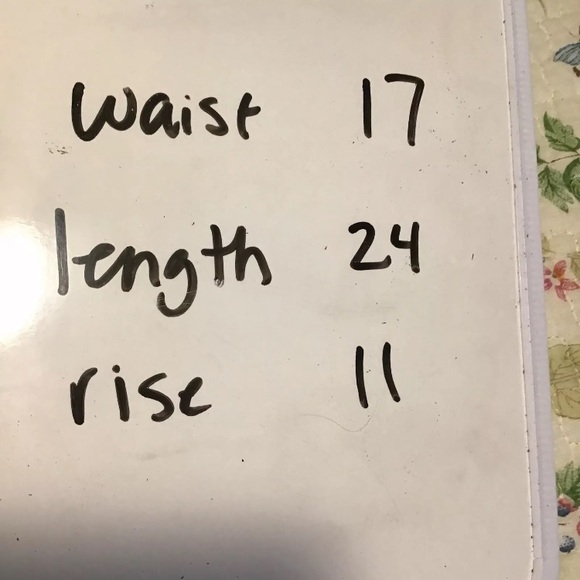 waist 17
length 24
rise 11